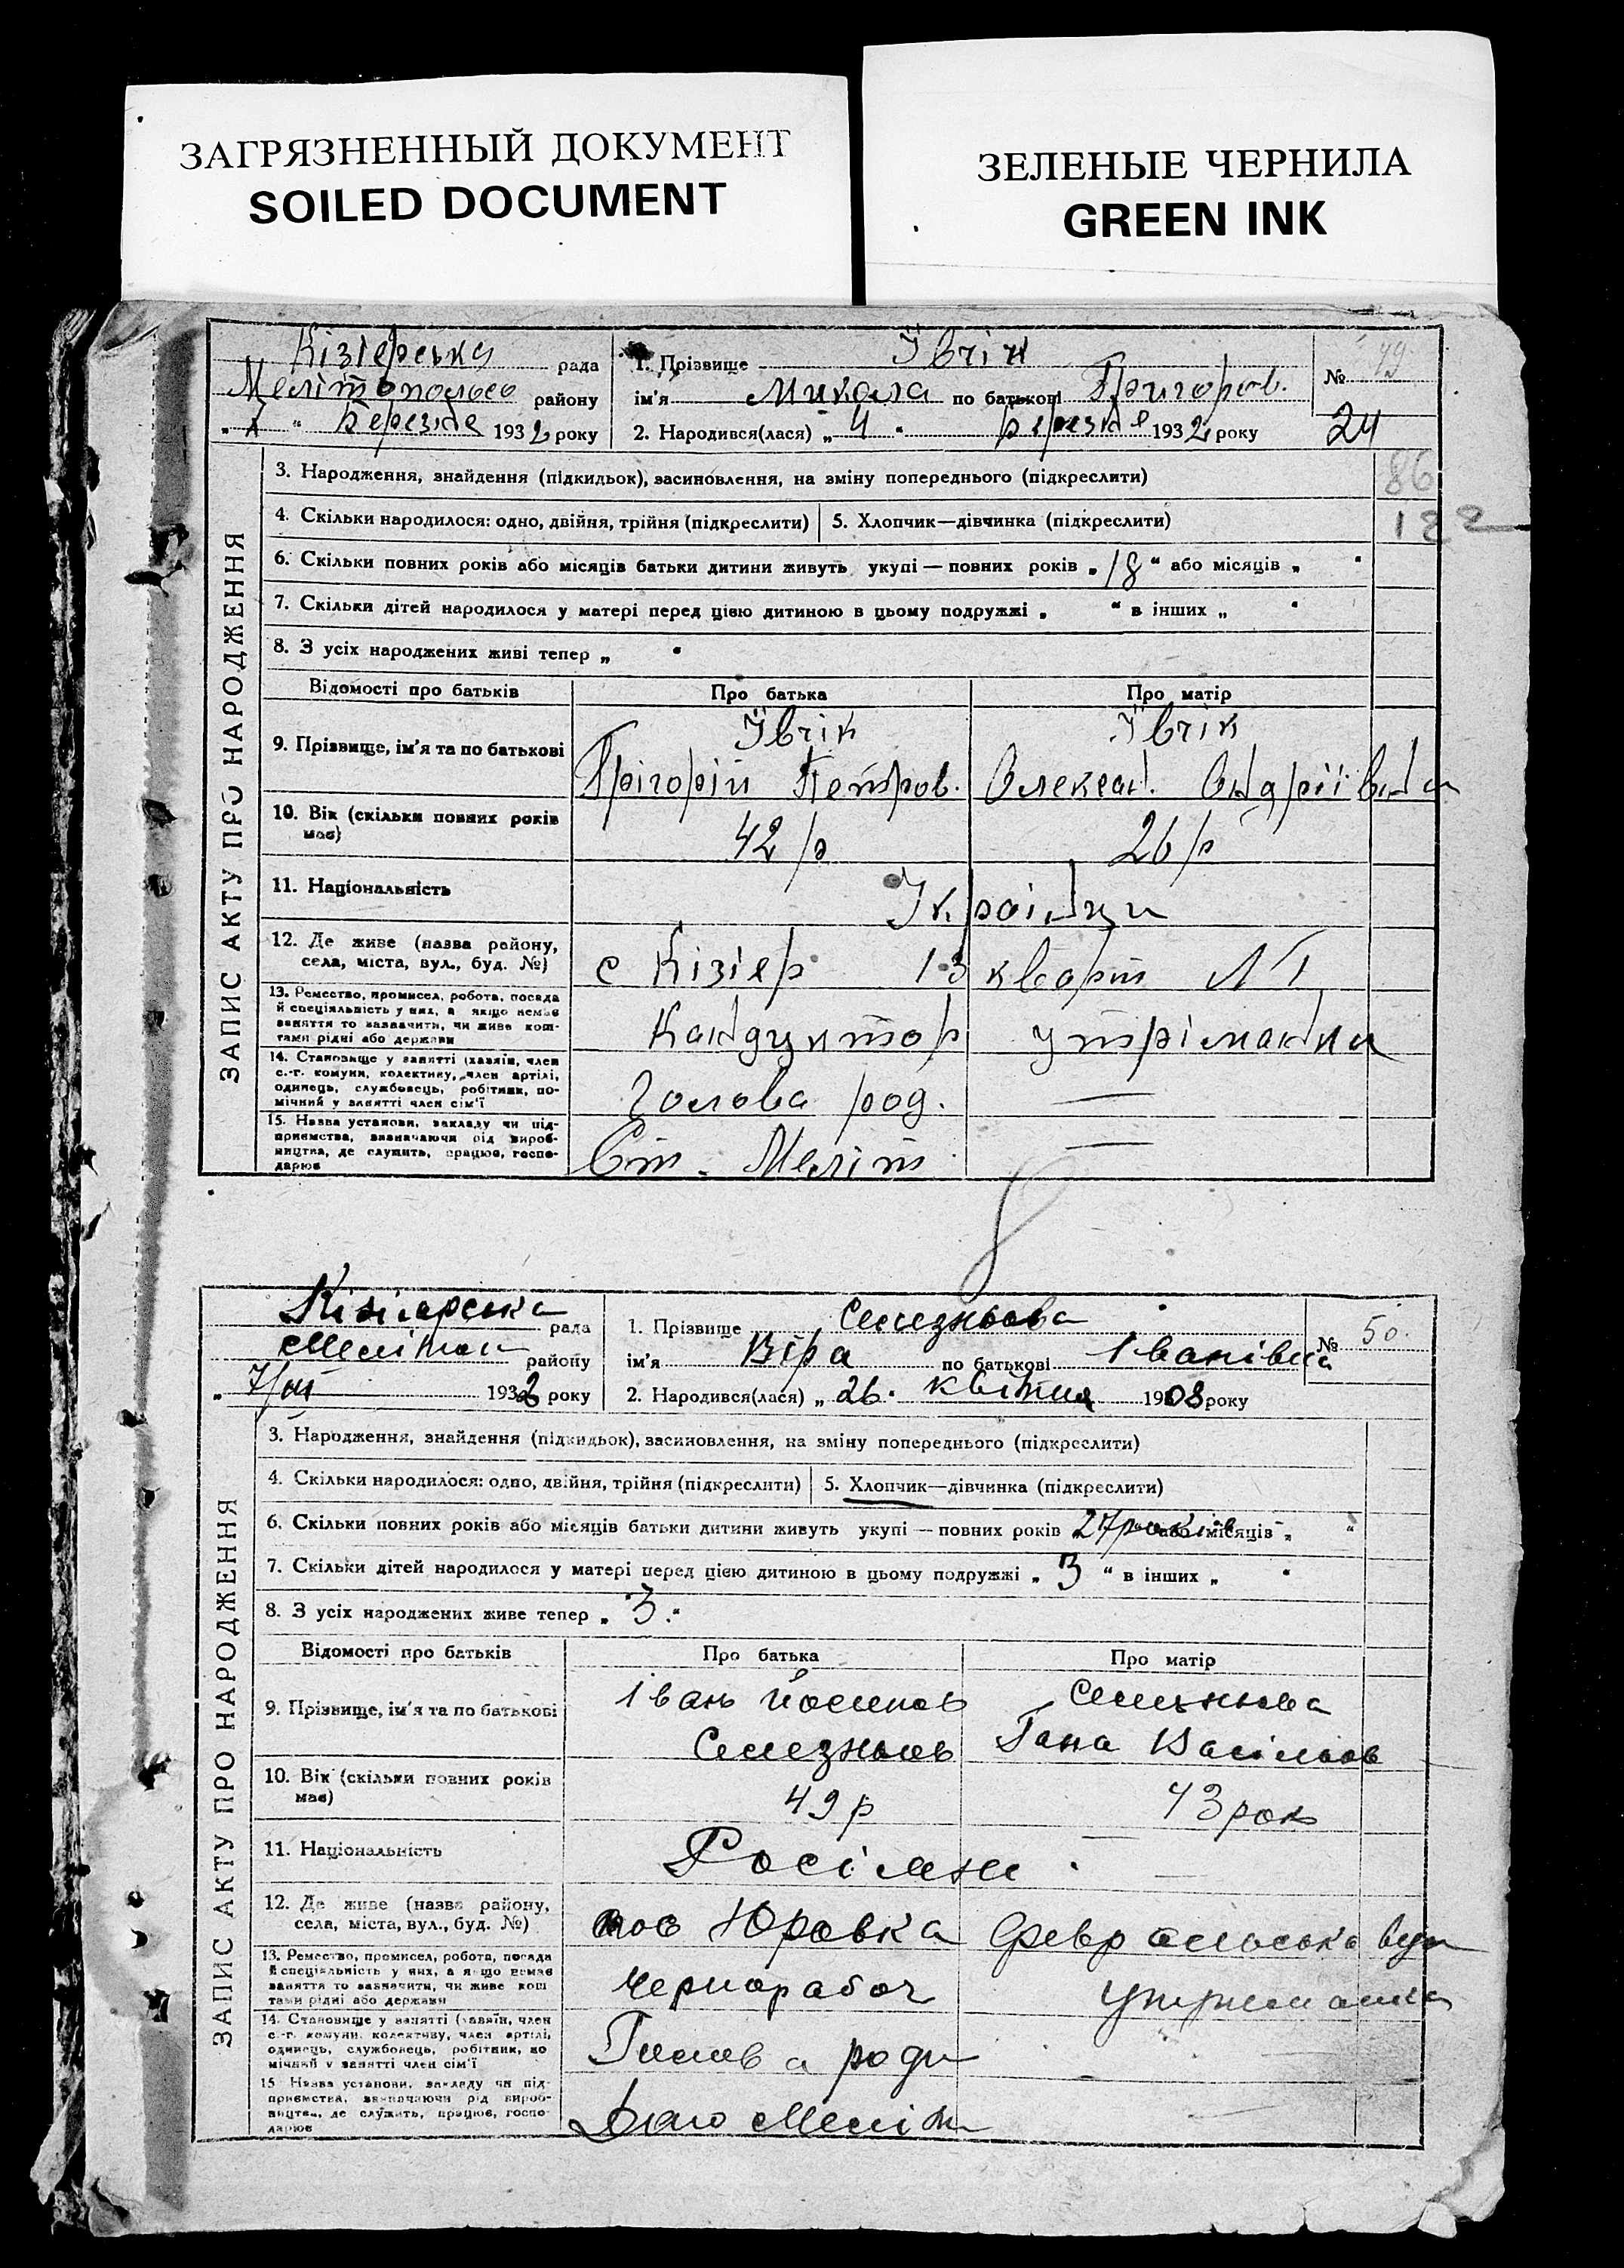 ЗАГРЯЗНЕННЫЙ ДОКУМЕНТ
SOILED DOCUMENT
ЗЕЛЕНЫЕ ЧЕРНИЛА
GREEN INK
ЗАПИС АКТУ ПРО НАРОДЖЕННЯ
Кізіерська рада
Мелітопольсо району
" " Березня 1932 року
1. Прізвище Ївгік
ім'я Микола по батькові Григоров.
2. Народився(лася) „ 4 " березня 1932 року
№ 49
24
86
122
3. Народження, знайдення (підкидьок), засиновлення, на зміну попереднього (підкреслити)
4. Скільки народилося: одно, двійня, трійня (підкреслити) 5. Хлопчик—дівчинка (підкреслити)
6. Скільки повних років або місяців батьки дитини живуть укупі — повних років „ 18 " або місяців „ "
7. Скільки дітей народилося у матері перед цією дитиною в цьому подружжі „ " в інших „ "
8. З усіх народжених живі тепер „ "
Відомості про батьків Про батька Про матір
9. Прізвище, ім'я та по батькові
Ївгік Ївгік
Грігорій Петров. Олексан. Андріївна
10. Вік (скільки повних років має)
42 р 26 р
11. Національність
Їкраїнци
12. Де живе (назва району, села, міста, вул., буд. №)
с Кізіер 13 кварт №1
13. Ремество, промисел, робота, посада й спеціяльність у них, а якщо немає заняття то зазначити, чи живе коштами рідні або держави
Кандуктор утріманка
14. Становище у занятті (хазяїн, член с.-г. комуни, колективу, член артілі, одинець, службовець, робітник, помічний у занятті член сім'ї
Голова род. —
15. Назва установи, закладу чи підприємства, визначаючи рід виробництва, де служить, працює, господарює
Ст. Меліт —
ЗАПИС АКТУ ПРО НАРОДЖЕННЯ
Кізіарська рада
Меліто району
" 7/III 1932 року
1. Прізвище Селезньова
ім'я Віра по батькові Іванівна
2. Народився(лася) „ 26 " квітня 1908 року
№ 50.
3. Народження, знайдення (підкидьок), засиновлення, на зміну попереднього (підкреслити)
4. Скільки народилося: одно, двійня, трійня (підкреслити) 5. Хлопчик—дівчинка (підкреслити)
6. Скільки повних років або місяців батьки дитини живуть укупі — повних років 27 років або місяців „ "
7. Скільки дітей народилося у матері перед цією дитиною в цьому подружжі „ 3 " в інших „ "
8. З усіх народжених живе тепер „ 3 "
Відомості про батьків Про батька Про матір
9. Прізвище, ім'я та по батькові
Івань Йосипов Селезньова
Селезньов Гана Василов
10. Вік (скільки повних років має)
49 р 43 рок
11. Національність
Росіяни —
12. Де живе (назва району, села, міста, вул., буд. №)
пос Юровка Февральська вул
13. Ремество, промисел, робота, посада й спеціяльність у них, а якщо немає заняття то зазначити, чи живе коштами рідні або держави
Чернорабоч утриманка
14. Становище у занятті (хазяїн, член с.-г. комуни, колективу, член артілі, одинець, службовець, робітник, помічний у занятті член сім'ї
Голова роди
15 Назва установи, закладу чи підприємства, визначаючи рід виробництва, де служить, працює, господарює
Депо Меліто